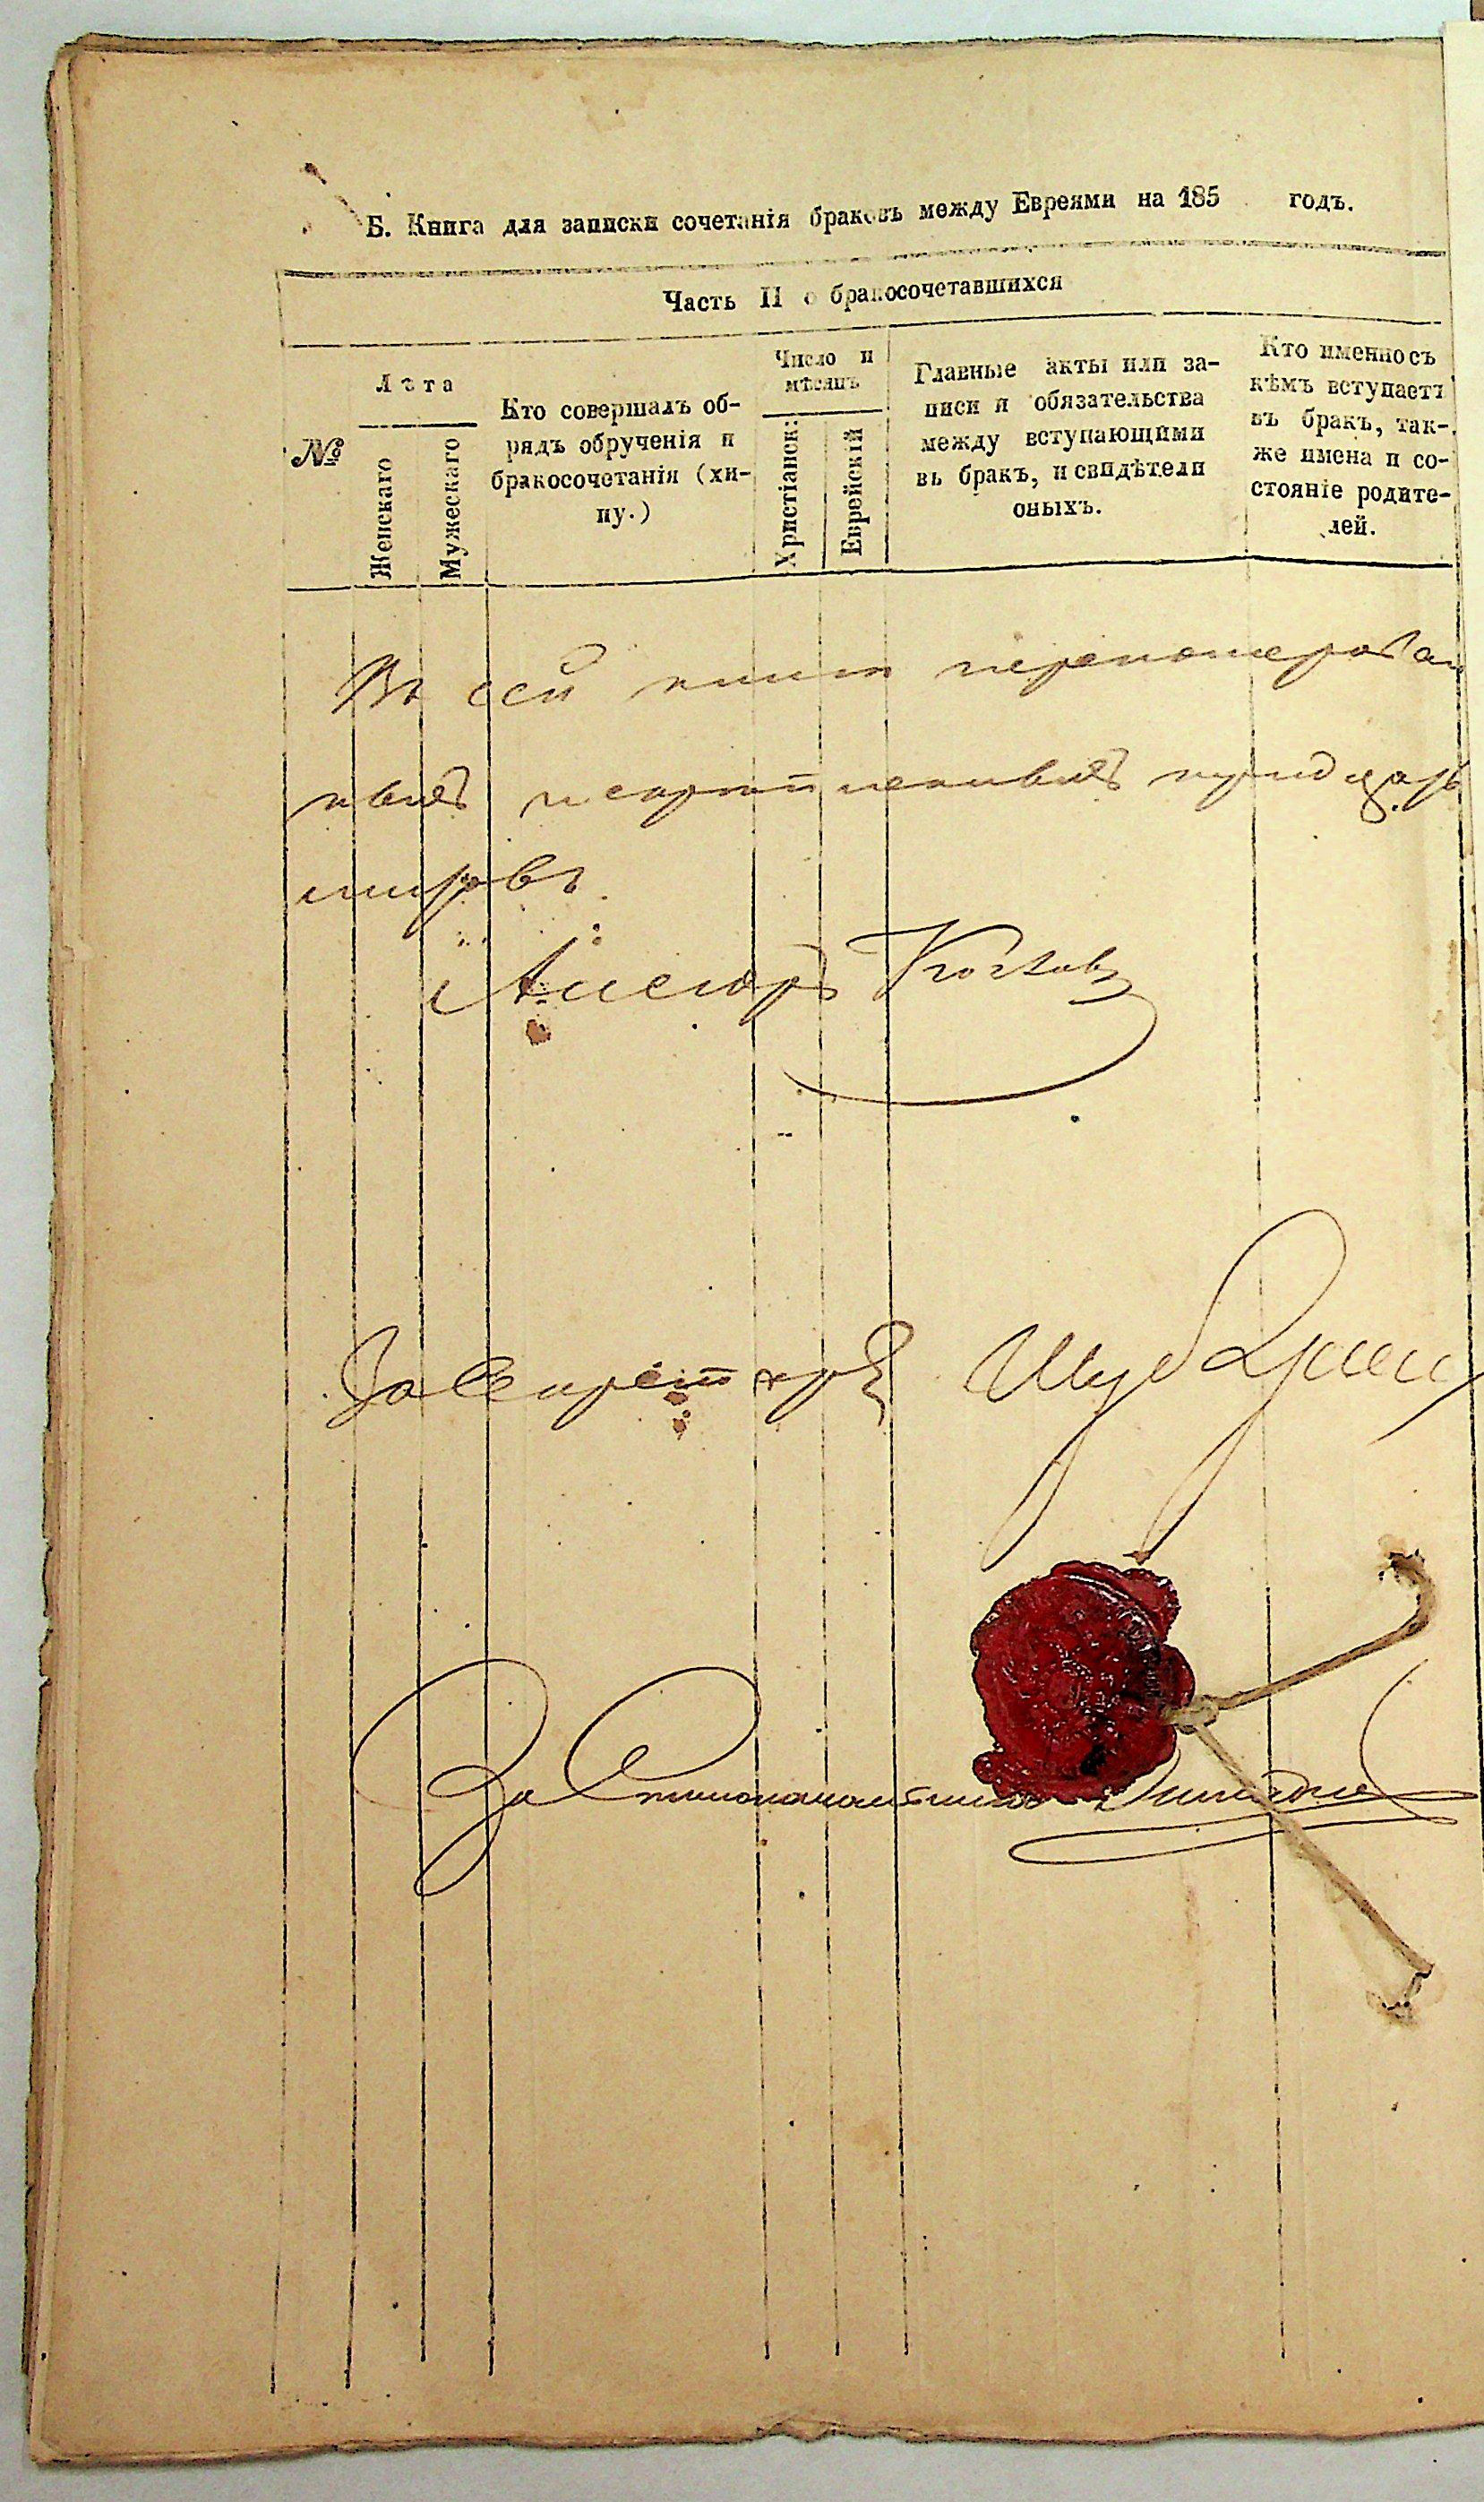 Б. Книга для записки сочетанія браковъ между Евреями на 185 годъ.
Часть II о бракосочетавшихся
№
Лѣта
Женскаго
Мужескаго
Кто совершалъ об-
рядъ обрученія и
бракосочетанія (хи-
пу.)
Число и
мѣсяцъ
Христіанск:
Еврейскій
Главные акты или за-
писи и обязательства
между вступающими
въ бракъ, и свидѣтели
оныхъ.
Кто именно съ
кѣмъ вступаетъ
въ бракъ, так-
же имена и со-
стояніе родите-
лей.
Въ сей книгѣ переномерован
ныхъ и скрепленныхъ
листовъ
За Секретаря
За Столоначальника